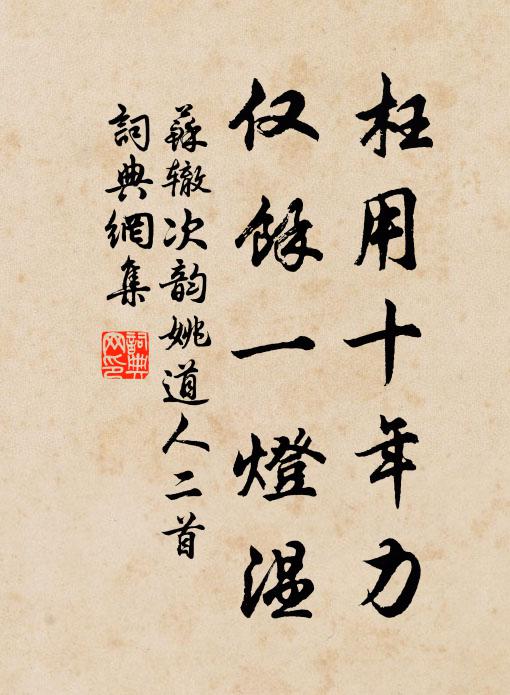 枉用十年力
仅餘一燈温
蘇辙次韵姚道人二首
詞典網集
詞典网印